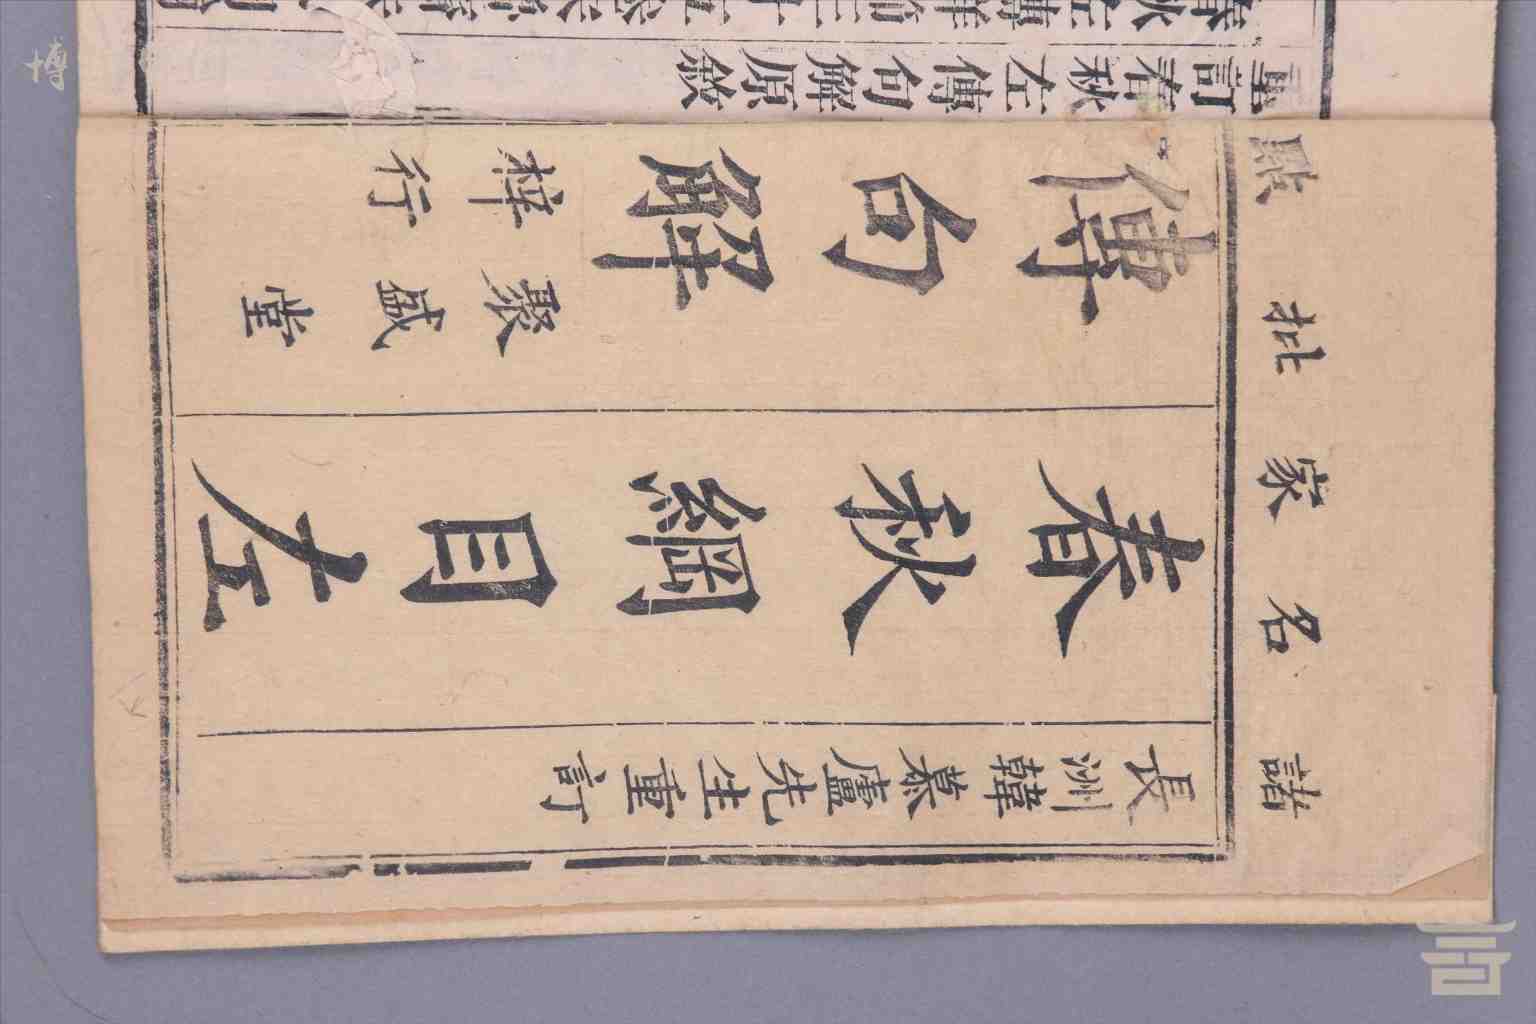 諸名家批點
長洲韓慕廬先生重訂
春秋綱目左
傳句解
聚盛堂
梓行
重訂春秋左傳句解原敘